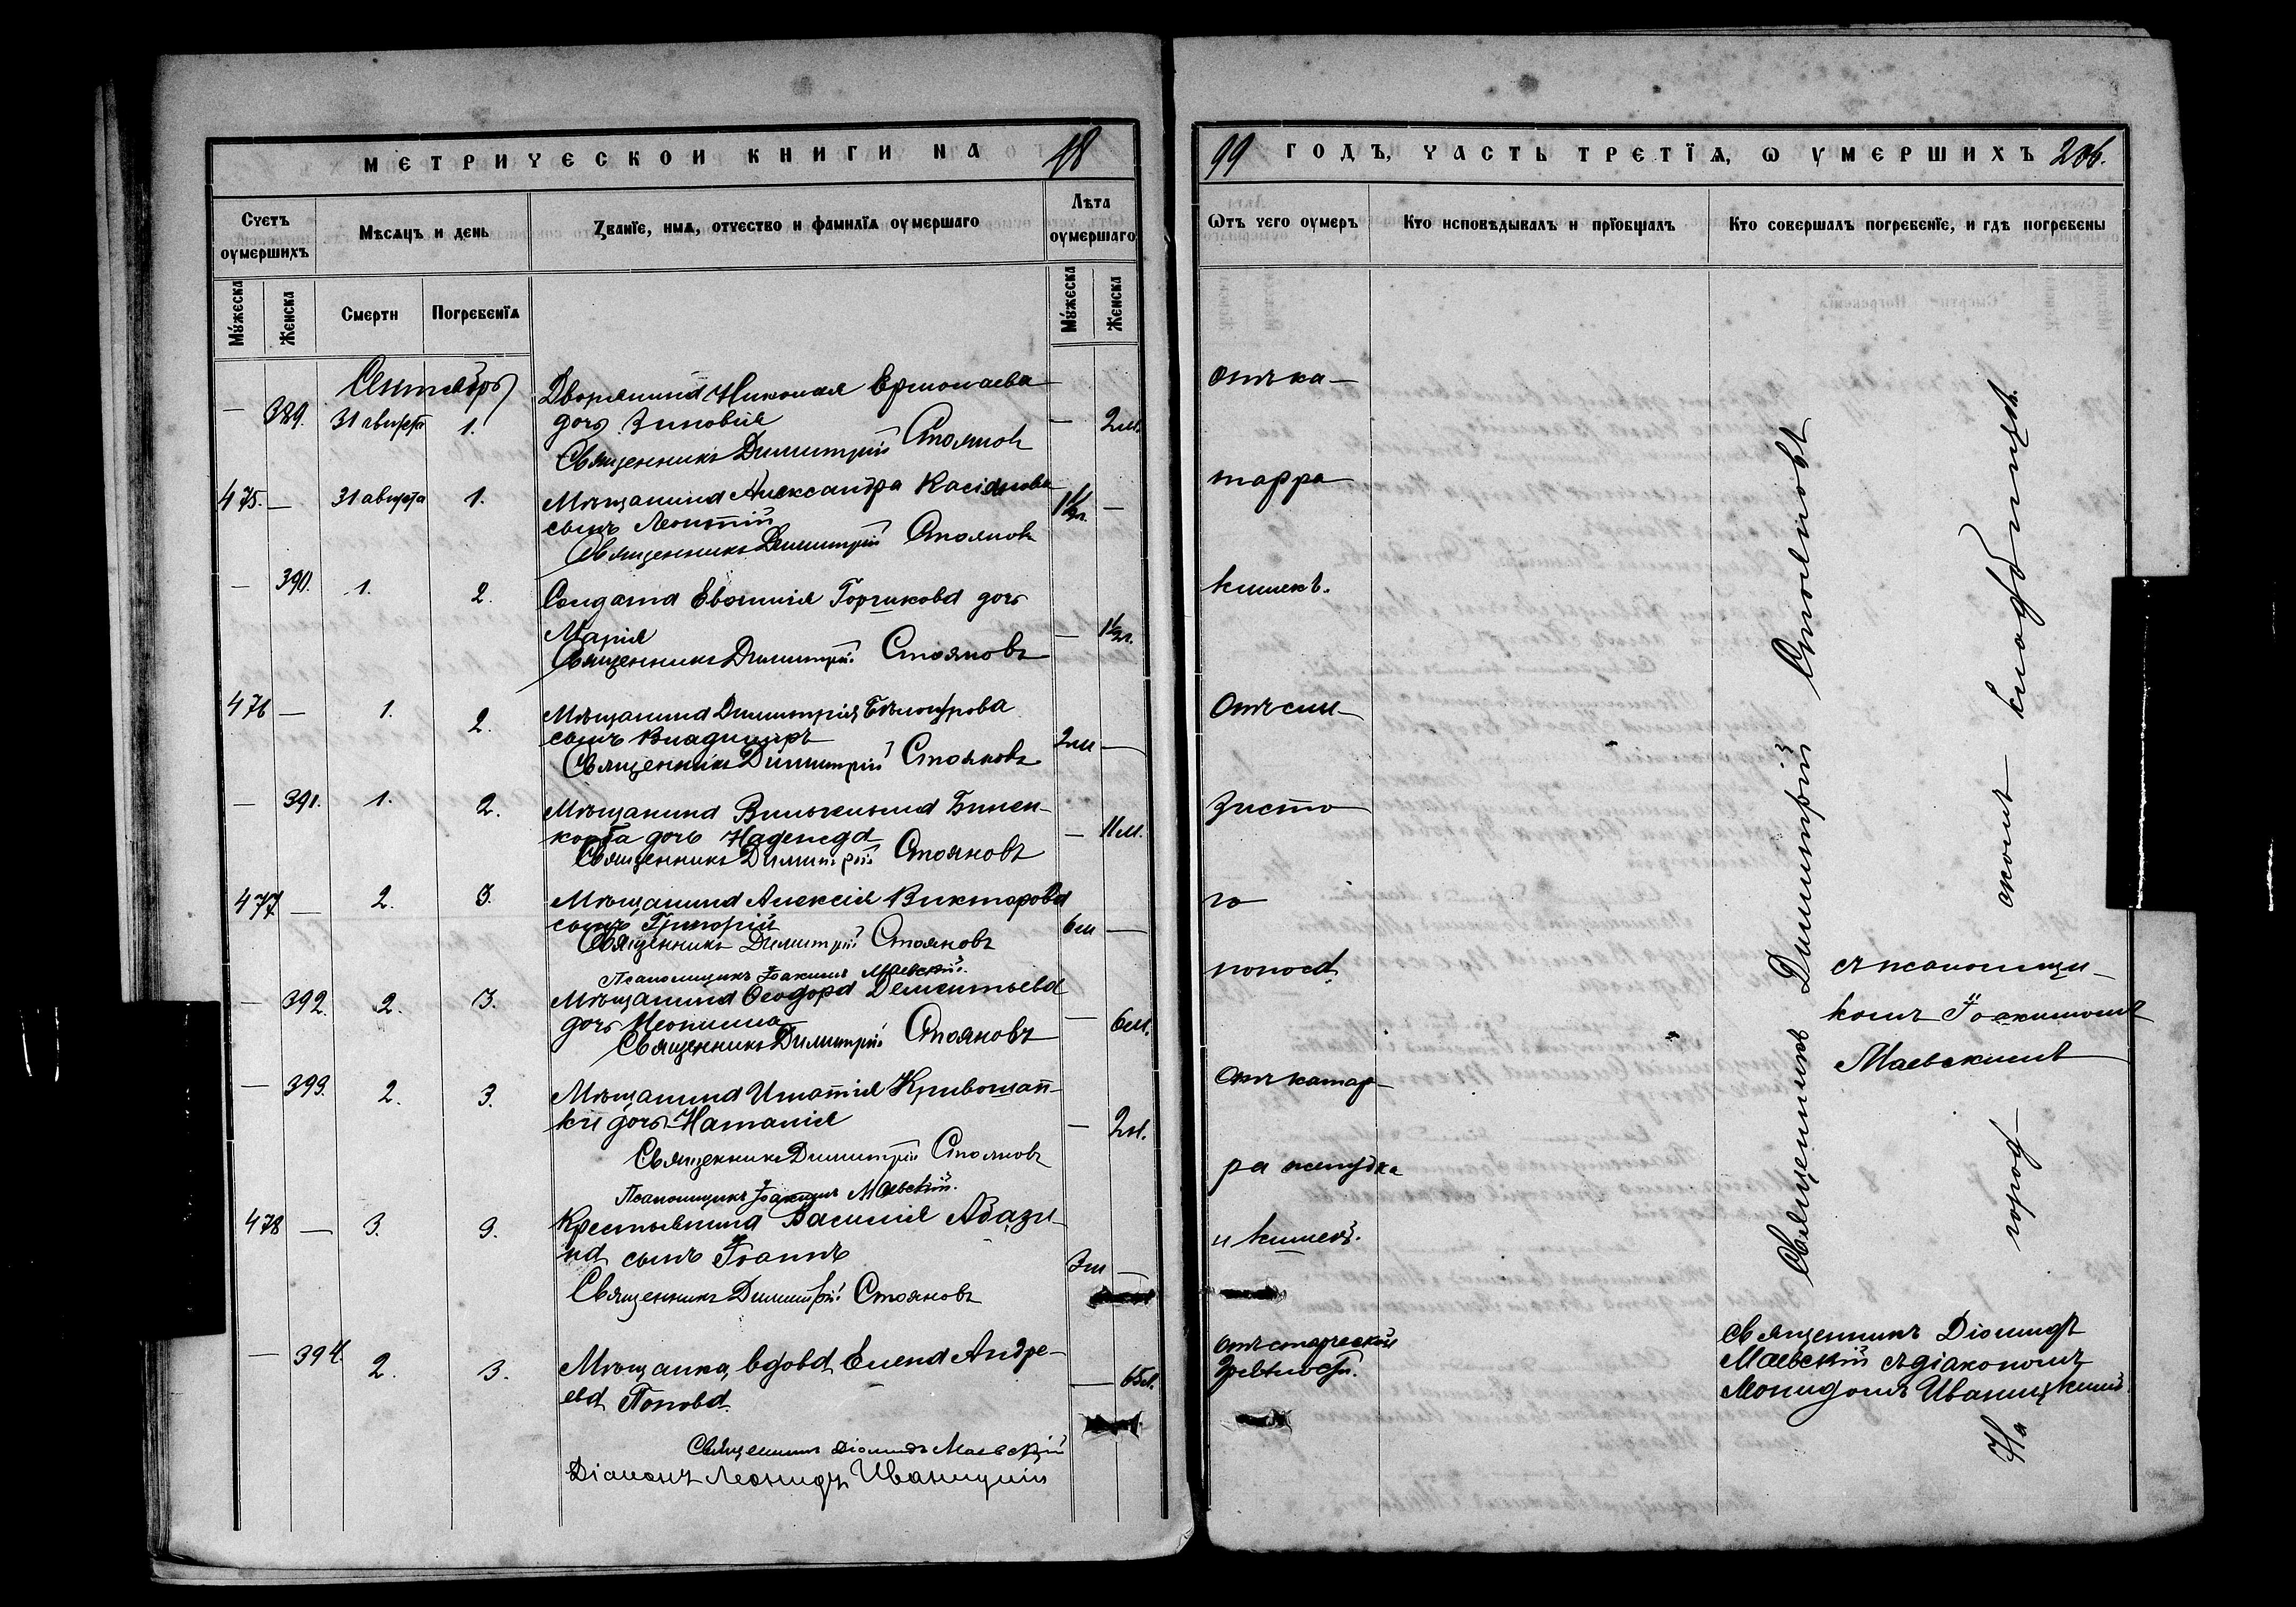 МЕТРИЧЕСКОЙ КНИГИ НА 18
Счетъ оумершихъ
Мѣсяцъ и день
Званїе, имя, отчество и фамилїя оумершаго
Лѣта оумершаго
Мꙋжеска
Женска
Смерти
Погребенїя
Мꙋжеска
Женска
Сентябрь
— 389. 31 августа 1. Дворянина Николая Ермолаева
дочь Зиновія — 2 м.
Священникъ Димитрій Стояновъ
475. — 31 августа 1. Мѣщанина Александра Касіянова
сынъ Леонтій 1½ г. —
Священникъ Димитрій Стояновъ
— 390. 1. 2. Солдата Евфимія Горчикова дочь
Марія — 1½ г.
Священникъ Димитрій Стояновъ
476 — 1. 2. Мѣщанина Димитрія
сынъ Владиміръ 2 м —
Священникъ Димитрій Стояновъ
— 391. 1. 2. Мѣщанина Вильгельма
дочь Надежда — 11 м.
Священникъ Димитрій Стояновъ
477 — 2. 3. Мѣщанина Алексія Викторова
сынъ Григорій 6 м —
Священникъ Димитрій Стояновъ
Псаломщикъ Іоакимъ Маевскій.
— 392. 2. 3. Мѣщанина Ѳеодора Дементьева
дочь Неонилла — 6 м.
Священникъ Димитрій Стояновъ
— 393. 2. 3. Мѣщанина Игнатія Кривошап-
ки дочь Наталія — 2 м.
Священникъ Димитрій Стояновъ
Псаломщикъ Іоакимъ Маевскій.
478 — 3. 3. Крестьянина Василія Абази-
на сынъ Іоаннъ 3 м —
Священникъ Димитрій Стояновъ
— 394. 2. 3. Мѣщанка, вдова Елена Андре-
ева Попова. — 65 л.
Священникъ Діомидъ Маевскій
Діаконъ Леонидъ Иваницкій
99 ГОДЪ, ЧАСТЬ ТРЕТЇЯ, Ѡ ОУМЕРШИХЪ 206.
Ѿтъ чего оумеръ
Кто исповѣдывалъ и прїобщалъ
Кто совершалъ погребенїе, и гдѣ погребены
Отъ ка-
тарра
кишекъ.
Отъ силь-
наго
поноса
Отъ катар-
ра желудка
и кишекъ.
отъ старческой
дряхлости.
Священникъ Димитрій Стояновъ
съ псаломщи-
комъ Іоакимомъ
Маевскимъ
Священникъ Діомидъ
Маевскій съ діакономъ
Леонидомъ Иваницкимъ.
На город-
скомъ кладбищѣ.